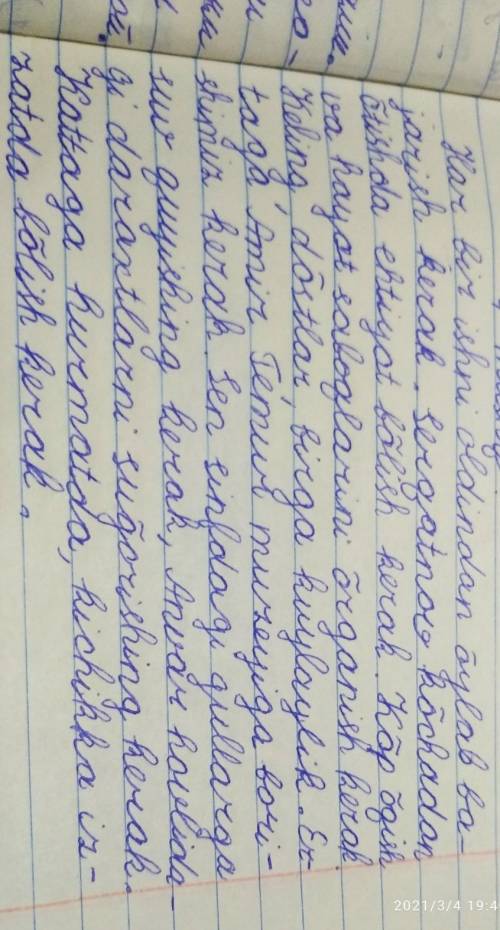 Har bir ishni oldindan õylab ba-
jarish kerak. serqatnov kõchadan
õtishda ehtiyot bõlish kerak. Kõp õqish
va hayot saboqlarini õrganish kerak
Keling, dõstlar, birga kuylaylik. Er-
taga Amir Temur muzeyiga bori-
shimiz kerak. sen sinfdagi gullarga
suv quyishing kerak, Anvar hovlida-
gi daraxtlarni suğorishing kerak.
Kattaga hurmatda, kichikka iz-
zatda bõlish kerak.
2021/3/4 19:4